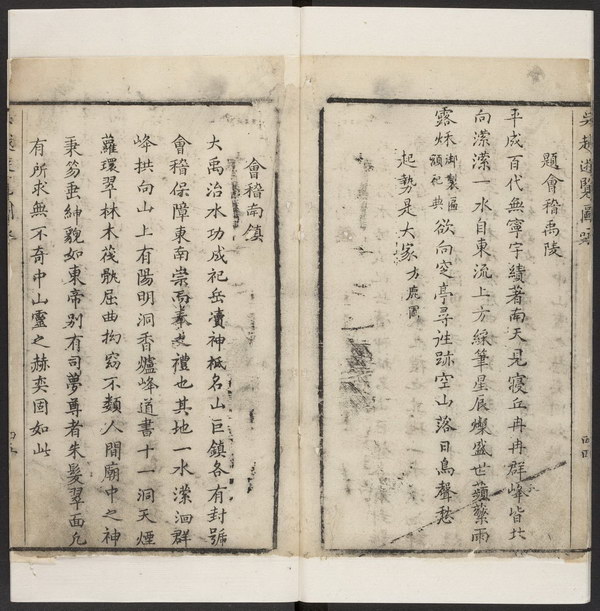 題會稽禹陵
平成百代無寧宇續著南天見寢丘冉冉群峰皆北
向濚濚一水自東流上方綵筆星辰燦盛世蘋蘩雨
露秌御製匾額祀典欲向窆亭尋徃跡空山落日鳥聲愁
起勢是大家方鹿園
會稽南鎮
大禹治水功成祀岳瀆神祗名山巨鎮各有封號
會稽保障東南崇而奉之禮也其地一水濚洄群
峰拱向山上有陽明洞香爐峰道書十一洞天煙
蘿環翠林木茂骩屈曲拘窈不類人間廟中之神
秉笏垂紳貌如東帝别有司夢尊者朱髮翠面凢
有所求無不奇中山靈之赫奕固如此